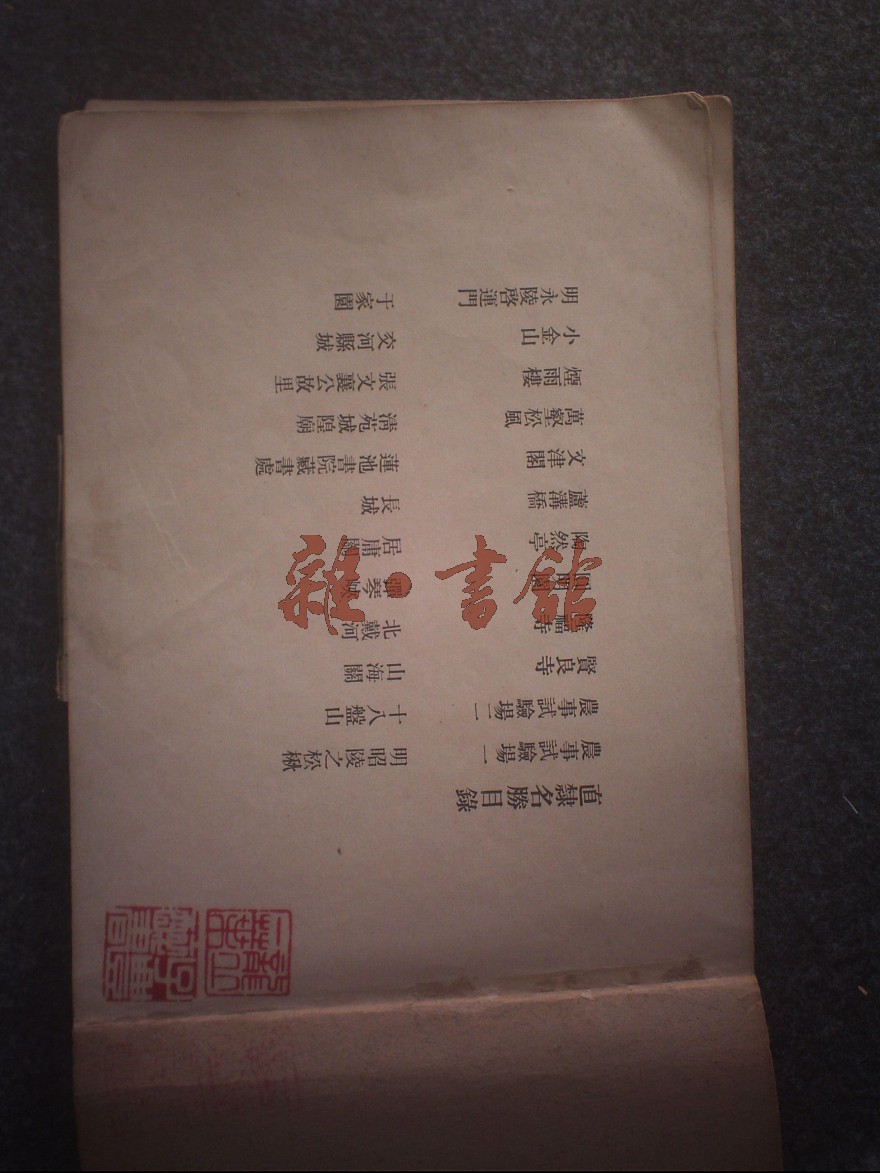 直隸名勝目錄
農事試驗場一
農事試驗場二
賢良寺
隆福寺
陶然亭
蘆溝橋
文津閣
萬壑松風
煙雨樓
小金山
明永陵啓運門
明昭陵之松楸
十八盤山
山海關
北戴河
彈琴峽
居庸關
長城
蓮池書院藏書處
清苑城隍廟
張文襄公故里
交河縣城
于家園
雜·書館